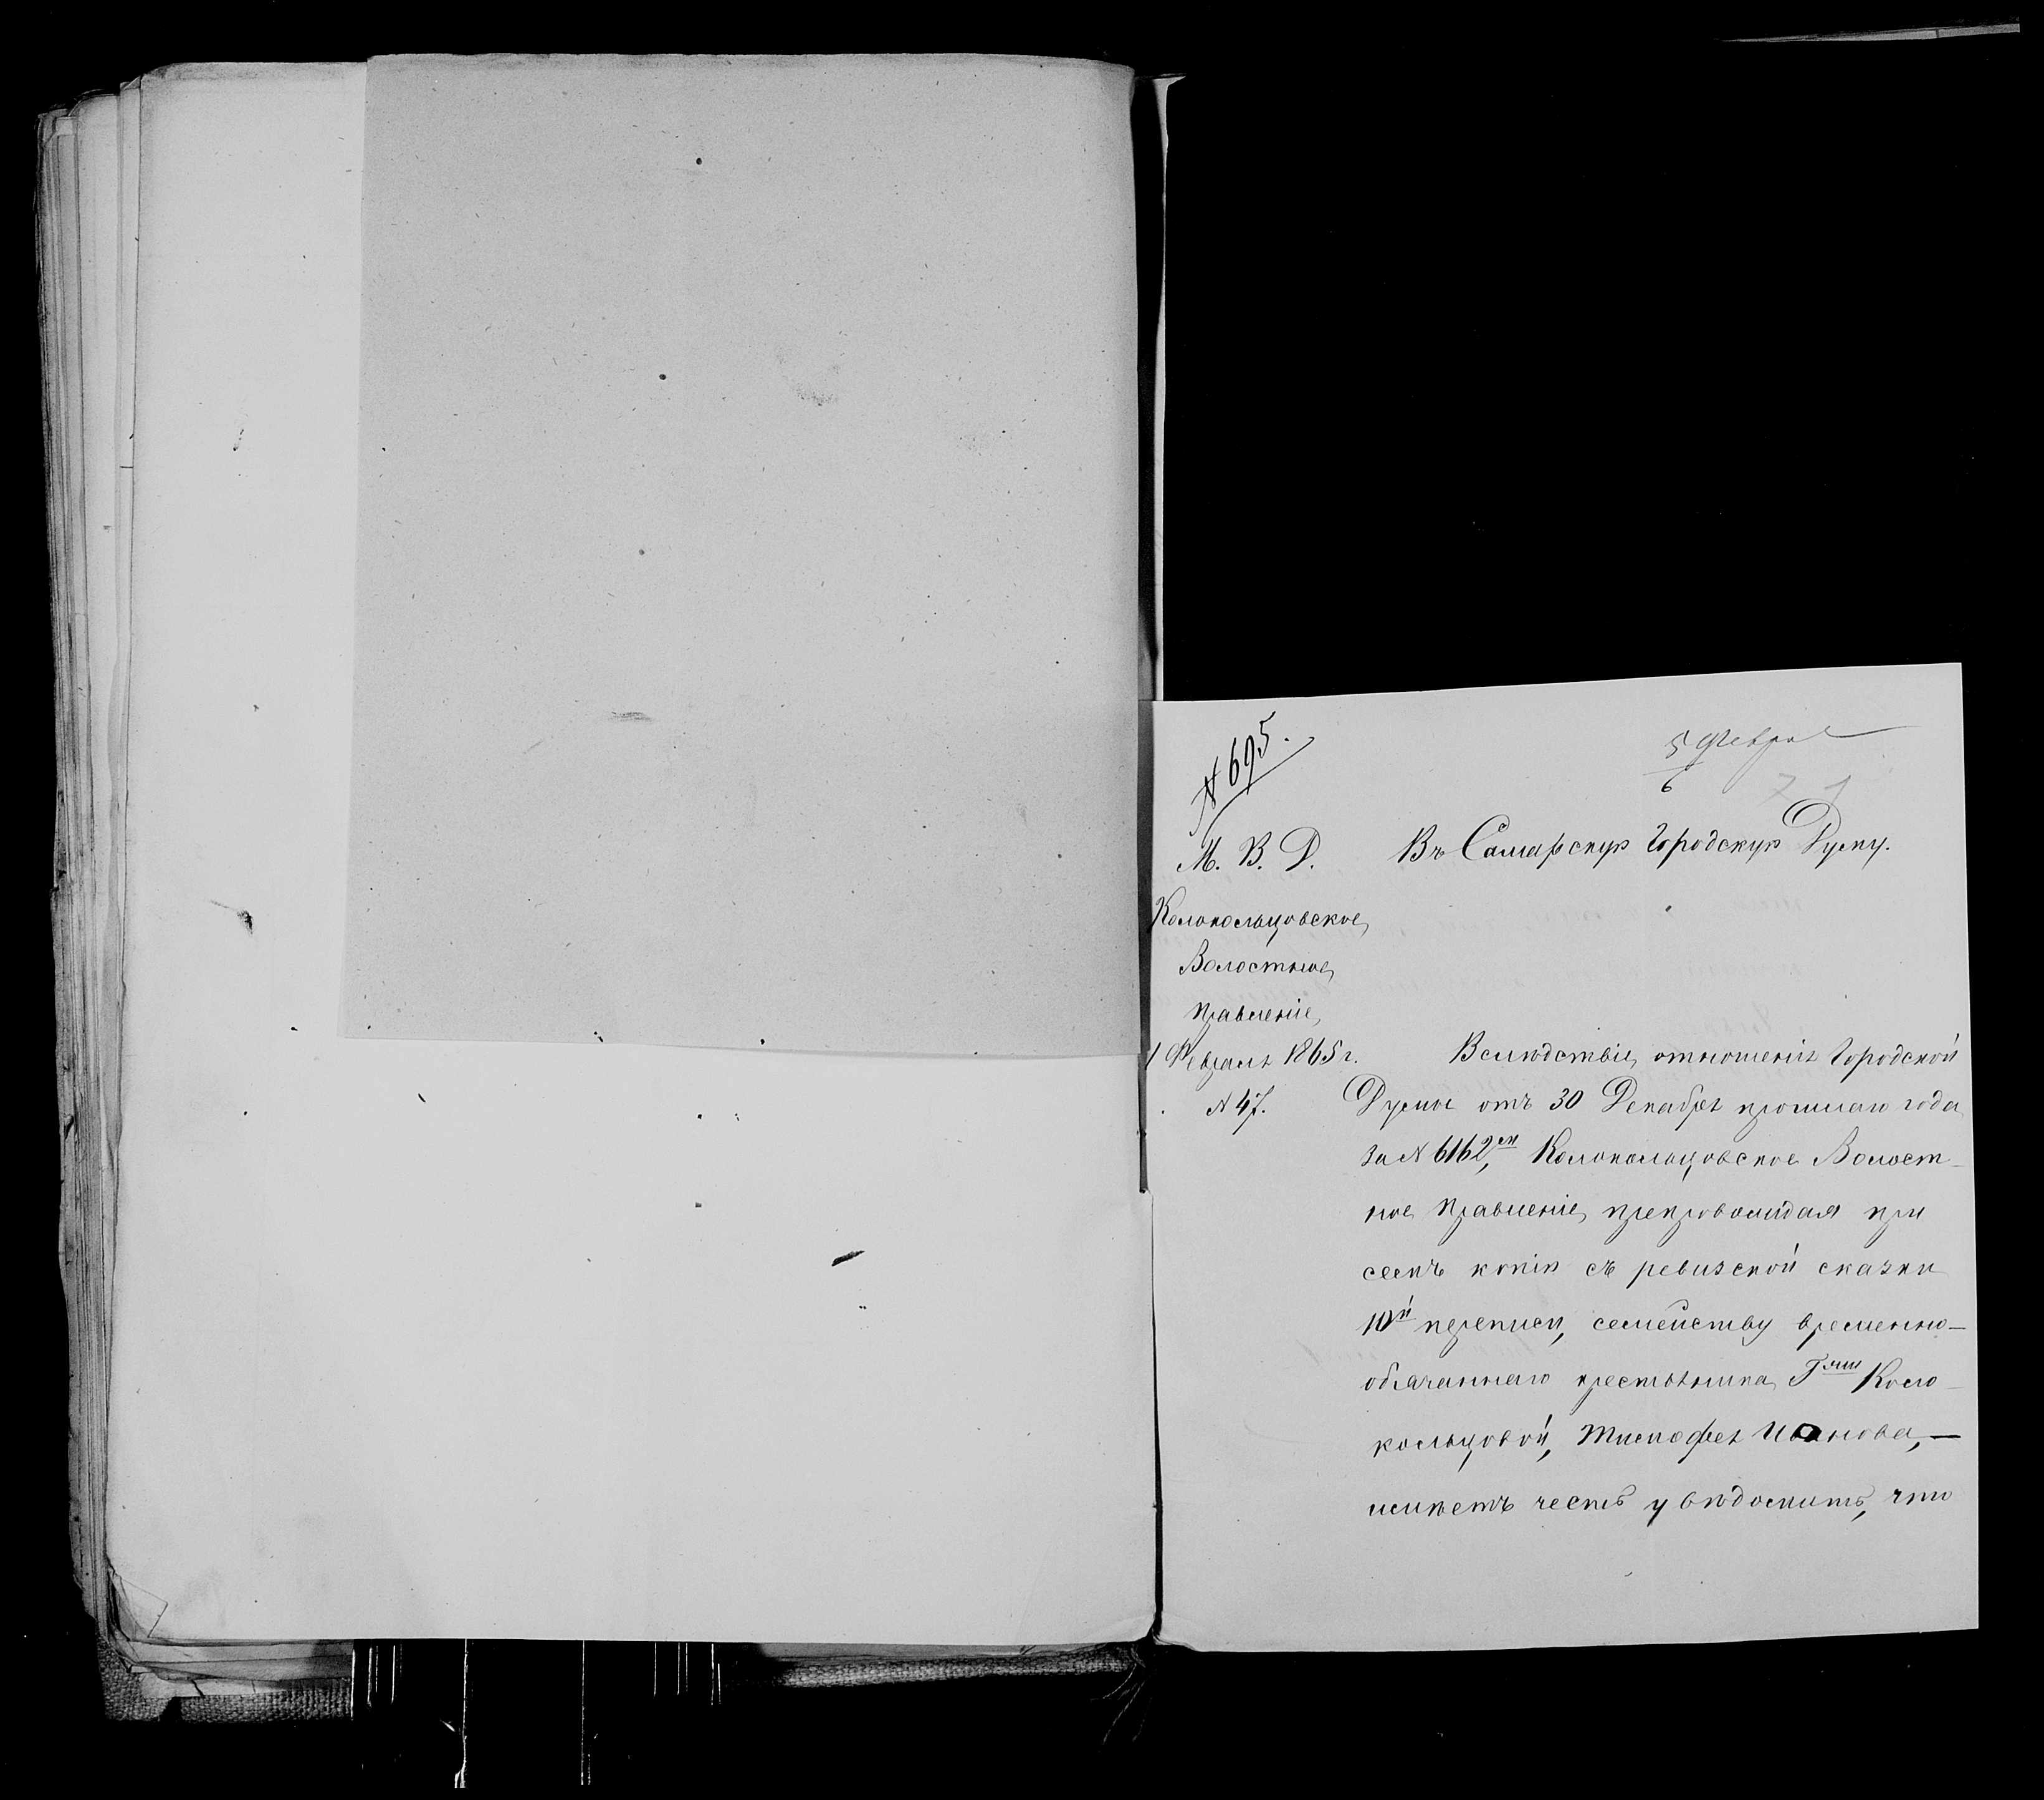 № 695.
5 Февра
6
71
М. В. Д.
Въ Самарскую Городскую Думу.
Колокольцовское
Волостное
Правленіе
1 Февраля 1865 г.
№ 47.
Вслѣдствіе отношенія Городской
Думы отъ 30 Декабря прошлаго года
за № 6162,ᵐ Колокольцовское Волост-
ное Правленіе, препровождая при
семъ копію съ ревизской сказки
10й переписи, семейству временно-
обязаннаго крестьянина Гжи Коло-
кольцовой, Тимофея Иванова, —
имѣетъ честь увѣдомить, что